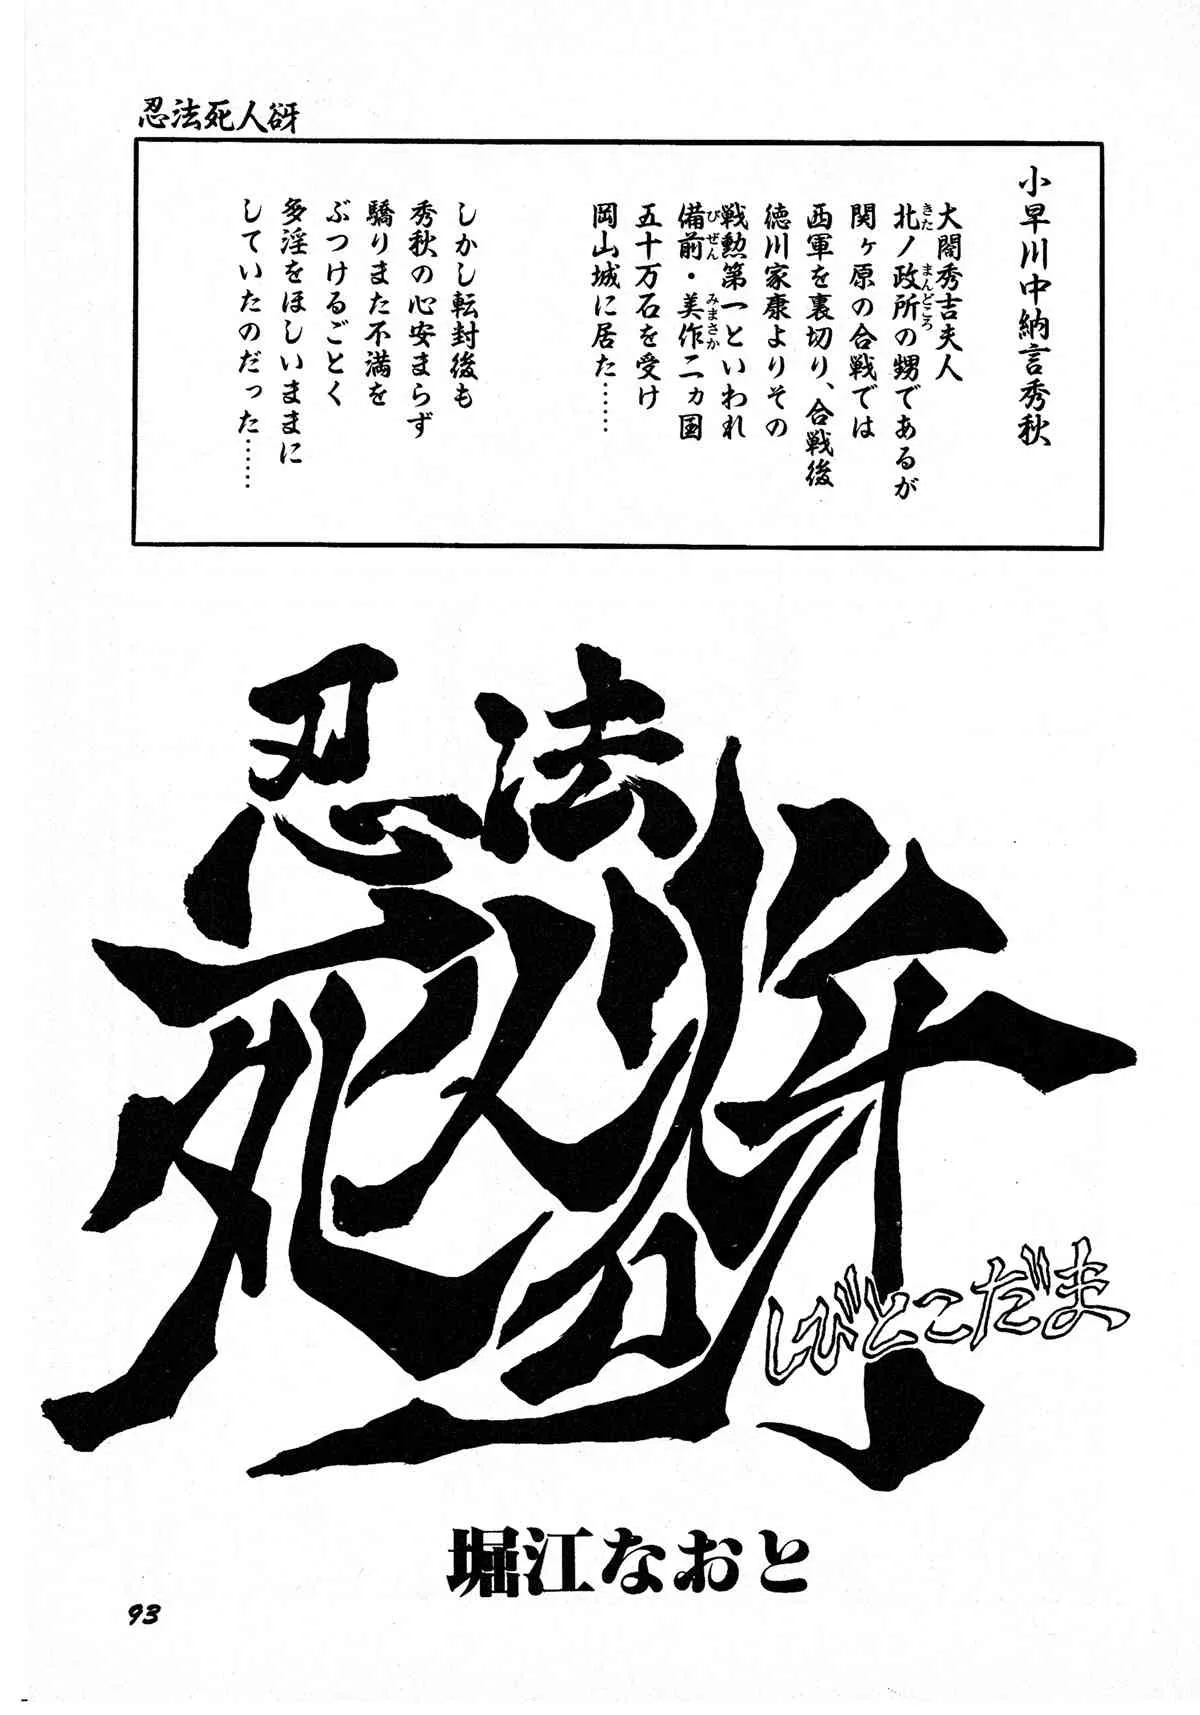 忍法死人谺
小早川中納言秀秋
大閤秀吉夫人
北ノ政所の甥であるが
きた まんどころ
関ヶ原の合戦では
西軍を裏切り、合戦後
徳川家康よりその
戦勲第一といわれ
備前・美作二ヵ国
びぜん みまさか
五十万石を受け
岡山城に居た……
しかし転封後も
秀秋の心安まらず
驕りまた不満を
ぶつけるごとく
多淫をほしいままに
していたのだった……
忍法
死人谺
しびとこだま
堀江なおと
93